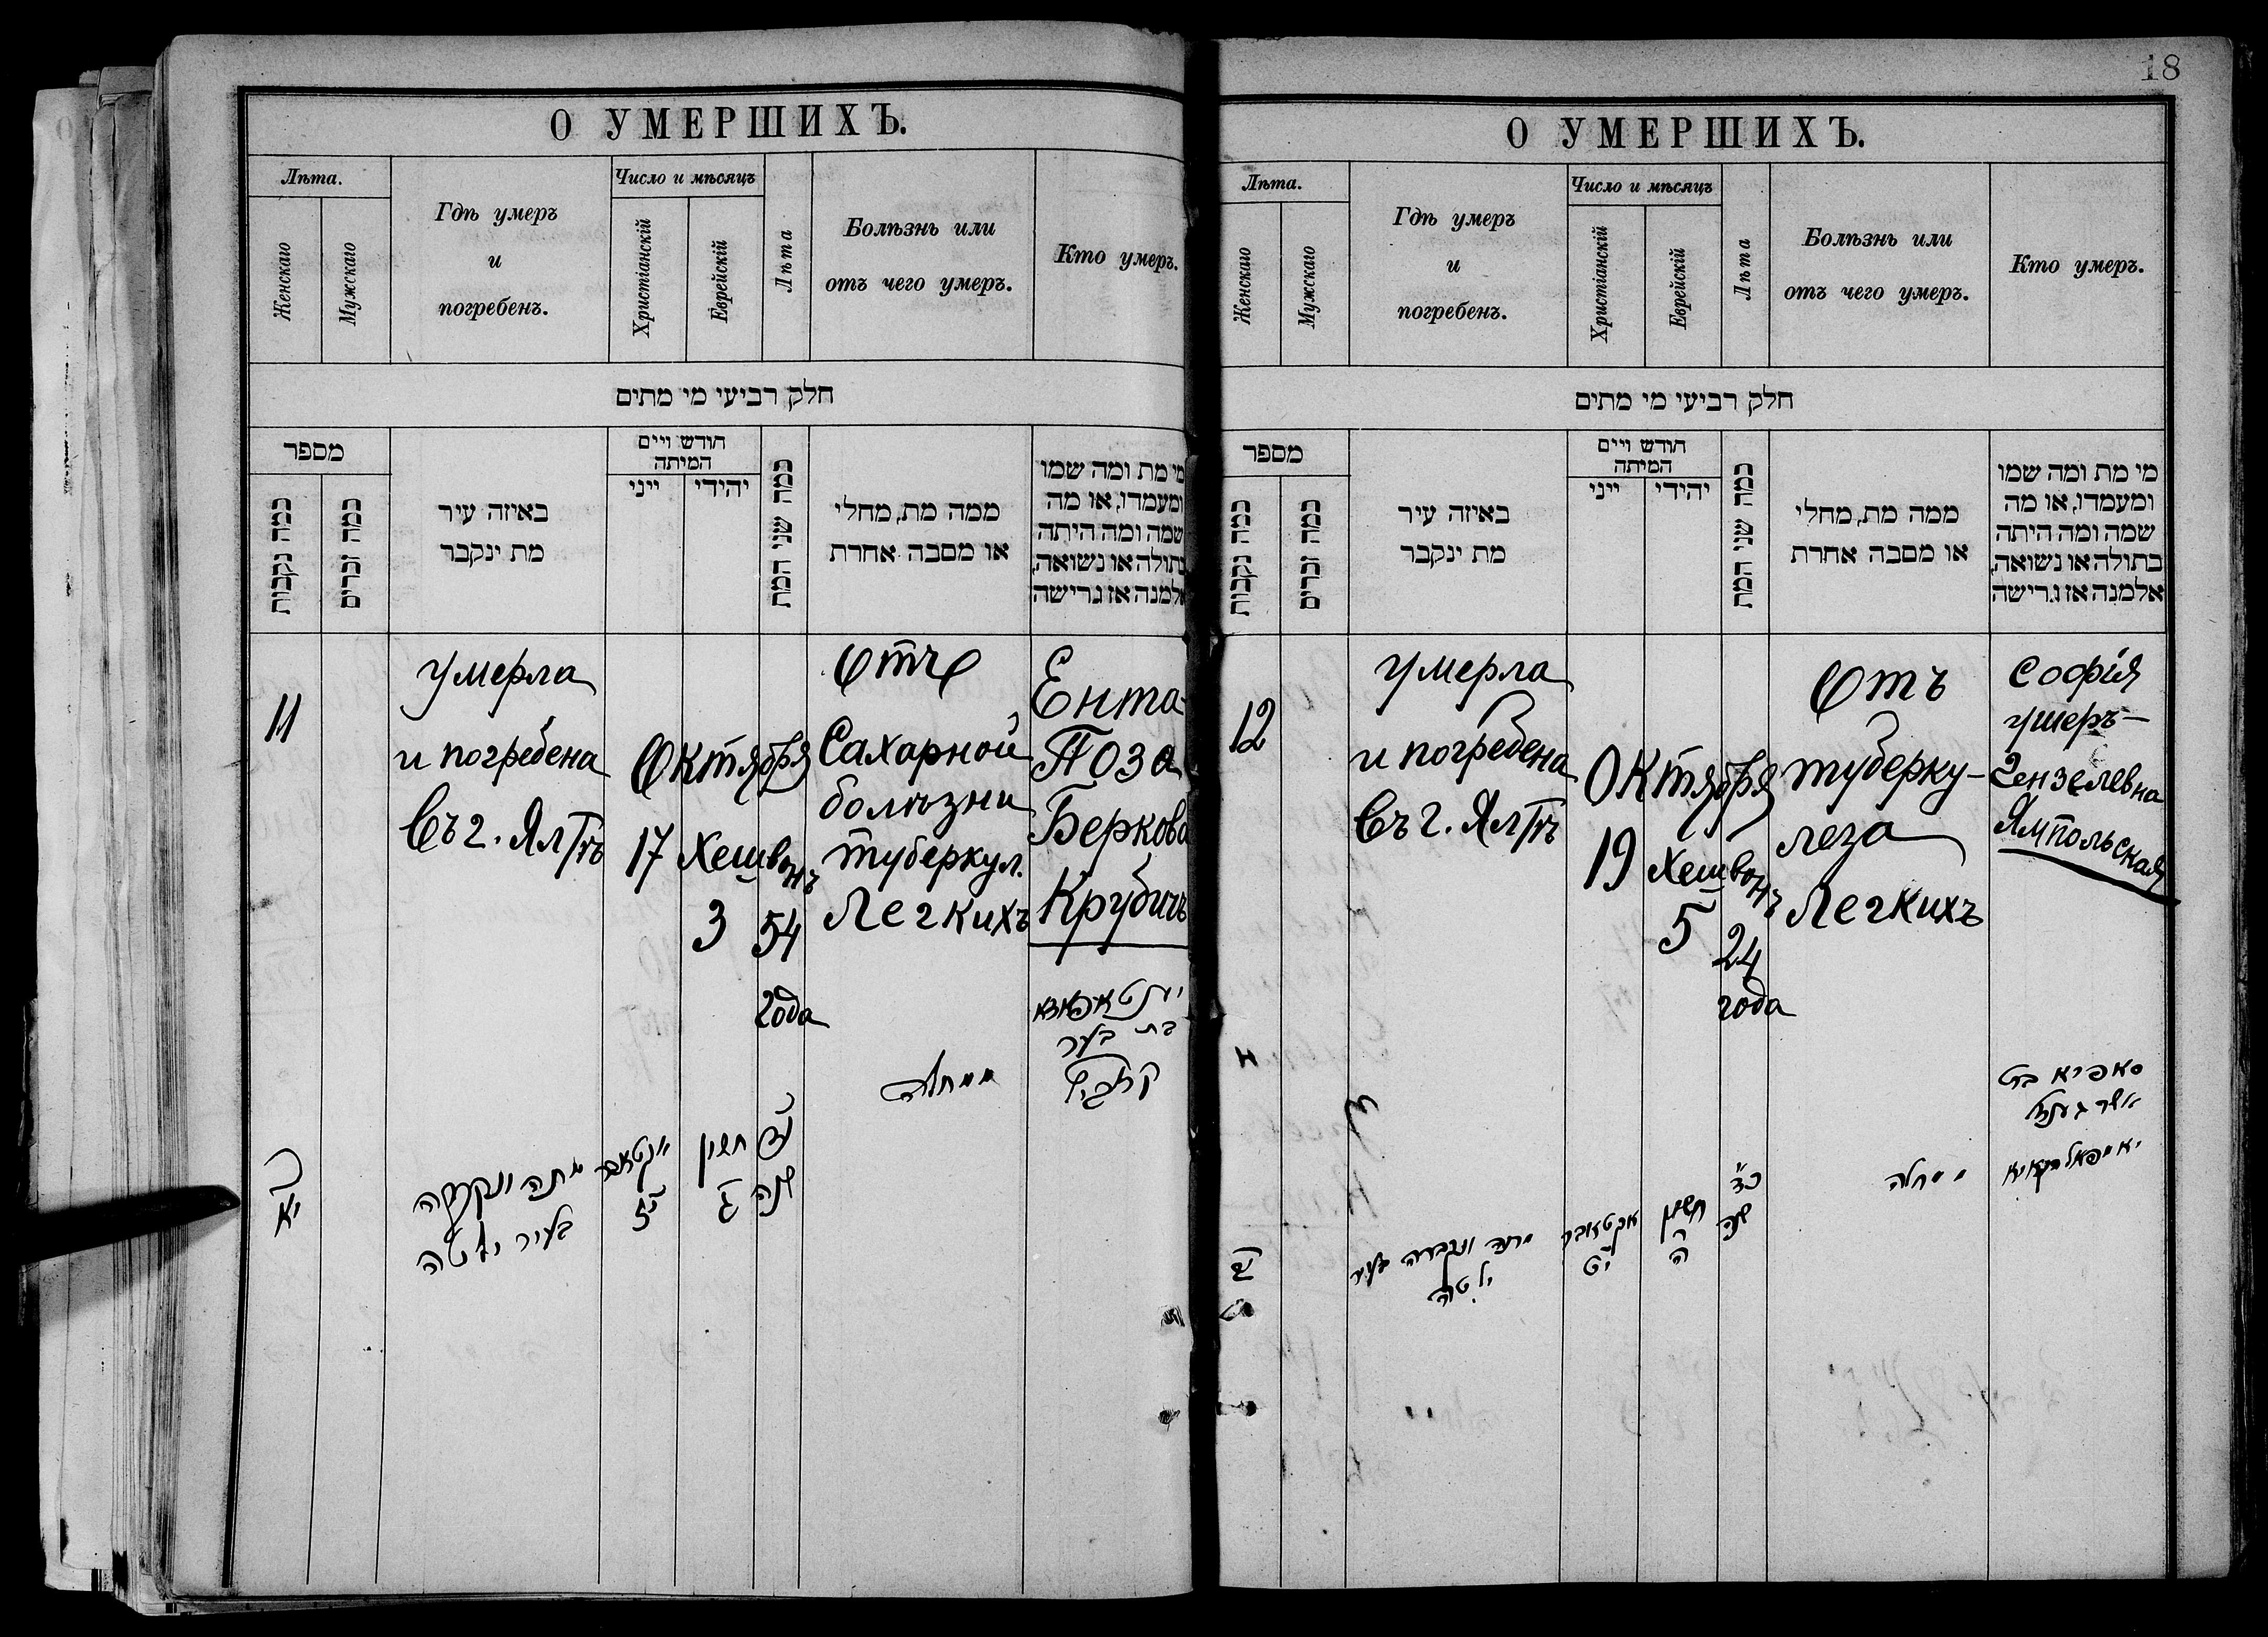 О УМЕРШИХЪ.
Лѣта.
Женскаго
Мужскаго
Гдѣ умеръ
и
погребенъ.
Число и мѣсяцъ
Христіанскій
Еврейскій
Лѣта
Болѣзнь или
отъ чего умеръ.
Кто умеръ.
חלק רביעי מי מתים
מספר
כמה נקבות
כמה זכרים
באיזה עיר
מת ינקבר
חודש ויים
המיתה
ייני
יהידי
כמה שני המת
ממה מת, מחלי
או מסבה אחרת
מי מת ומה שמו
ומעמדו, או מה
שמה ומה היתה
בתולה או נשואה,
אלמנה אז גרישה
11
умерла
и погребена
въ г. Ялтѣ
Октября
17 Хешвонъ
3
54
года
Отъ
Сахарной
болѣзни
туберкул.
Легкихъ
Ента-
Поза
Беркова
Крубичъ
יענטא פאזא
בת בער
קרוביץ
ממחלה
נד
שנה
חשון
ג
אקטאבר
יז
מתה ונקברה
בעיר יאלטה
יא
18
О УМЕРШИХЪ.
Лѣта.
Женскаго
Мужскаго
Гдѣ умеръ
и
погребенъ.
Число и мѣсяцъ
Христіанскій
Еврейскій
Лѣта
Болѣзнь или
отъ чего умеръ.
Кто умеръ.
חלק רביעי מי מתים
מספר
כמה נקבות
כמה זכרים
באיזה עיר
מת ינקבר
חודש ויים
המיתה
ייני
יהידי
כמה שני המת
ממה מת, מחלי
או מסבה אחרת
מי מת ומה שמו
ומעמדו, או מה
שמה ומה היתה
בתולה או נשואה,
אלמנה אז גרישה
12
умерла
и погребена
въ г. Ялтѣ
Октября
19 Хешвонъ
5
24
года
Отъ
туберку-
леза
Легкихъ
Софія
Ушеръ-
Гензелевна
Ямпольская
סאפיא בת
אשר
יאמפאלסקאיא
ממחלה
כ״ד
שנה
חשון
ה
אקטאבר
יט
מתה ונקברה בעיר
ילטה
יב